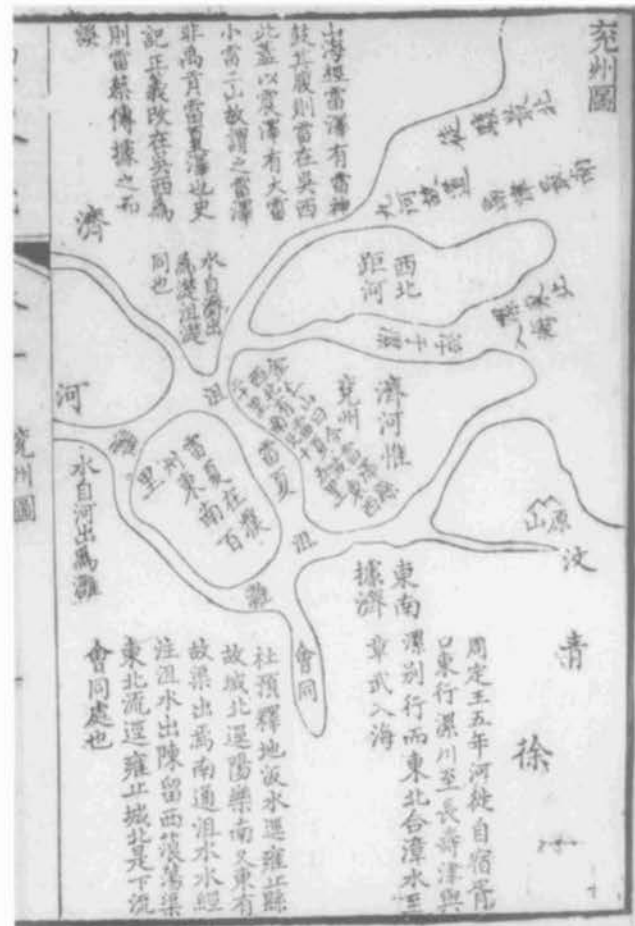 兖州圖
山海經雷澤有雷神
鼓其腹則雷在吳西
此蓋以震澤有大雷
小雷二山故謂之雷澤
非禹貢雷夏澤也史
記正義改在吳西爲
則雷蔡傳據之而
誤
濟
水自濟出
爲濋沮濋
同也
西北
距河
濟河惟
兖州
沮
雷夏
雷夏在濮
州東南百
里
河
灉
水自河出爲灉
沮
灉
會同
原山
汶
青
徐
東南
據濟
周定王五年河徙自宿胥
口東行漯川至長壽津與
漯别行而東北合漳水至
章武入海
杜預釋地汳水逕雍丘縣
故城北逕陽樂南又東有
故渠出焉南通沮水水經
注沮水出陳留西蒗蕩渠
東北流逕雍丘城北是下流
會同處也
兖州圖